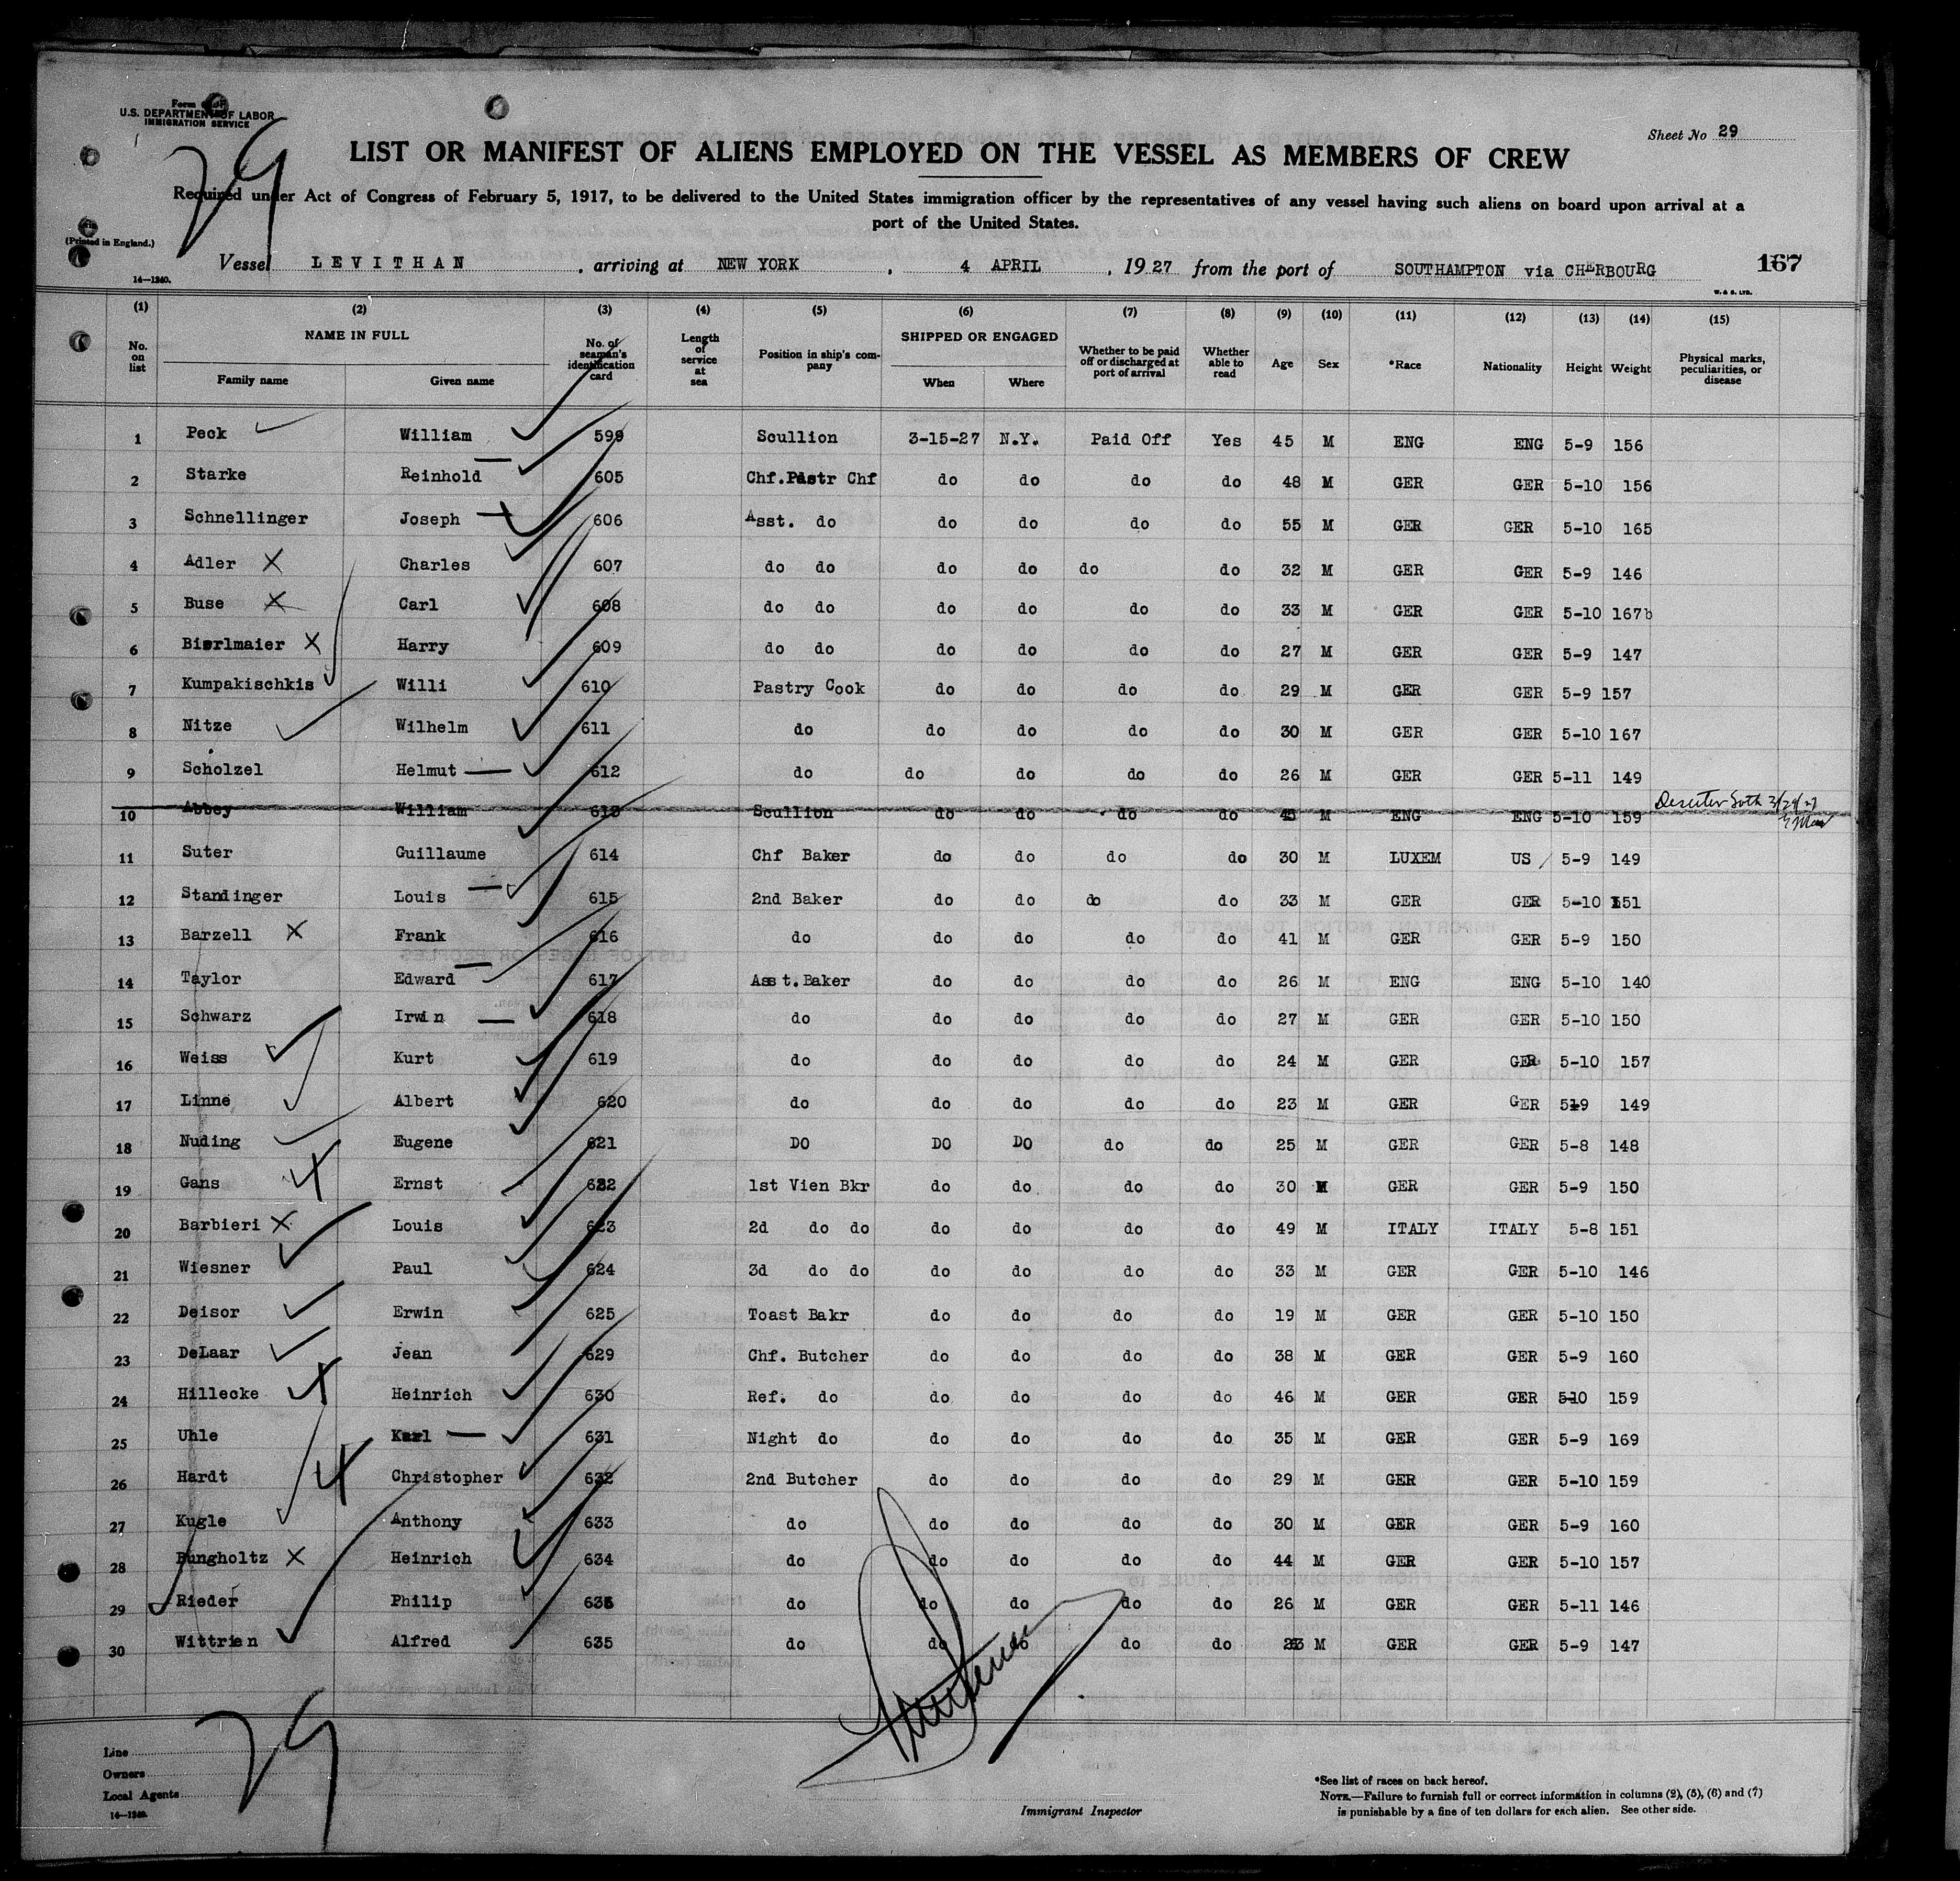 Form
U.S. DEPARTMENT OF LABOR
IMMIGRATION SERVICE
29
Sheet No 29
LIST OR MANIFEST OF ALIENS EMPLOYED ON THE VESSEL AS MEMBERS OF CREW
Required under Act of Congress of February 5, 1917, to be delivered to the United States immigration officer by the representatives of any vessel having such aliens on board upon arrival at a
port of the United States.
(Printed in England.)
Vessel LEVITHAN, arriving at NEW YORK, 4 APRIL, 1927 from the port of SOUTHAMPTON via CHERBOURG 167
14—1240.
W. & S. LTD.
(1) (2) (3) (4) (5) (6) (7) (8) (9) (10) (11) (12) (13) (14) (15)
No. on list NAME IN FULL Family name Given name No. of seaman's identification card Length of service at sea Position in ship's company SHIPPED OR ENGAGED When Where Whether to be paid off or discharged at port of arrival Whether able to read Age Sex *Race Nationality Height Weight Physical marks, peculiarities, or disease
1 Peck William 599 Scullion 3-15-27 N.Y. Paid Off Yes 45 M ENG ENG 5-9 156
2 Starke Reinhold 605 Chf.Pastr Chf do do do do 48 M GER GER 5-10 156
3 Schnellinger Joseph 606 Asst. do do do do do 55 M GER GER 5-10 165
4 Adler Charles 607 do do do do do do 32 M GER GER 5-9 146
5 Buse Carl 608 do do do do do do 33 M GER GER 5-10 167b
6 Bierlmaier Harry 609 do do do do do do 27 M GER GER 5-9 147
7 Kumpakischkis Willi 610 Pastry Cook do do do do 29 M GER GER 5-9 157
8 Nitze Wilhelm 611 do do do do do 30 M GER GER 5-10 167
9 Scholzel Helmut 612 do do do do do 26 M GER GER 5-11 149
10 Abbey William 613 Scullion do do do do 45 M ENG ENG 5-10 159
11 Suter Guillaume 614 Chf Baker do do do do 30 M LUXEM US 5-9 149
12 Standinger Louis 615 2nd Baker do do do do 33 M GER GER 5-10 151
13 Barzell Frank 616 do do do do do 41 M GER GER 5-9 150
14 Taylor Edward 617 Asst.Baker do do do do 26 M ENG ENG 5-10 140
15 Schwarz Irwin 618 do do do do do 27 M GER GER 5-10 150
16 Weiss Kurt 619 do do do do do 24 M GER GER 5-10 157
17 Linne Albert 620 do do do do do 23 M GER GER 5-9 149
18 Nuding Eugene 621 DO DO DO do do 25 M GER GER 5-8 148
19 Gans Ernst 622 1st Vien Bkr do do do do 30 M GER GER 5-9 150
20 Barbieri Louis 623 2d do do do do do do 49 M ITALY ITALY 5-8 151
21 Wiesner Paul 624 3d do do do do do do 33 M GER GER 5-10 146
22 Deisor Erwin 625 Toast Bakr do do do do 19 M GER GER 5-10 150
23 DeLaar Jean 629 Chf. Butcher do do do do 38 M GER GER 5-9 160
24 Hillecke Heinrich 630 Ref. do do do do do 46 M GER GER 5-10 159
25 Uhle Karl 631 Night do do do do do 35 M GER GER 5-9 169
26 Hardt Christopher 632 2nd Butcher do do do do 29 M GER GER 5-10 159
27 Kugle Anthony 633 do do do do do 30 M GER GER 5-9 160
28 Bungholtz Heinrich 634 do do do do do 44 M GER GER 5-10 157
29 Rieder Philip do do do do do 26 M GER GER 5-11 146
30 Wittrien Alfred 635 do do do do do M GER GER 5-9 147
29
Line
Owners
Local Agents
14—1240.
Immigrant Inspector
*See list of races on back hereof.
NOTE.—Failure to furnish full or correct information in columns (2), (5), (6) and (7)
is punishable by a fine of ten dollars for each alien. See other side.